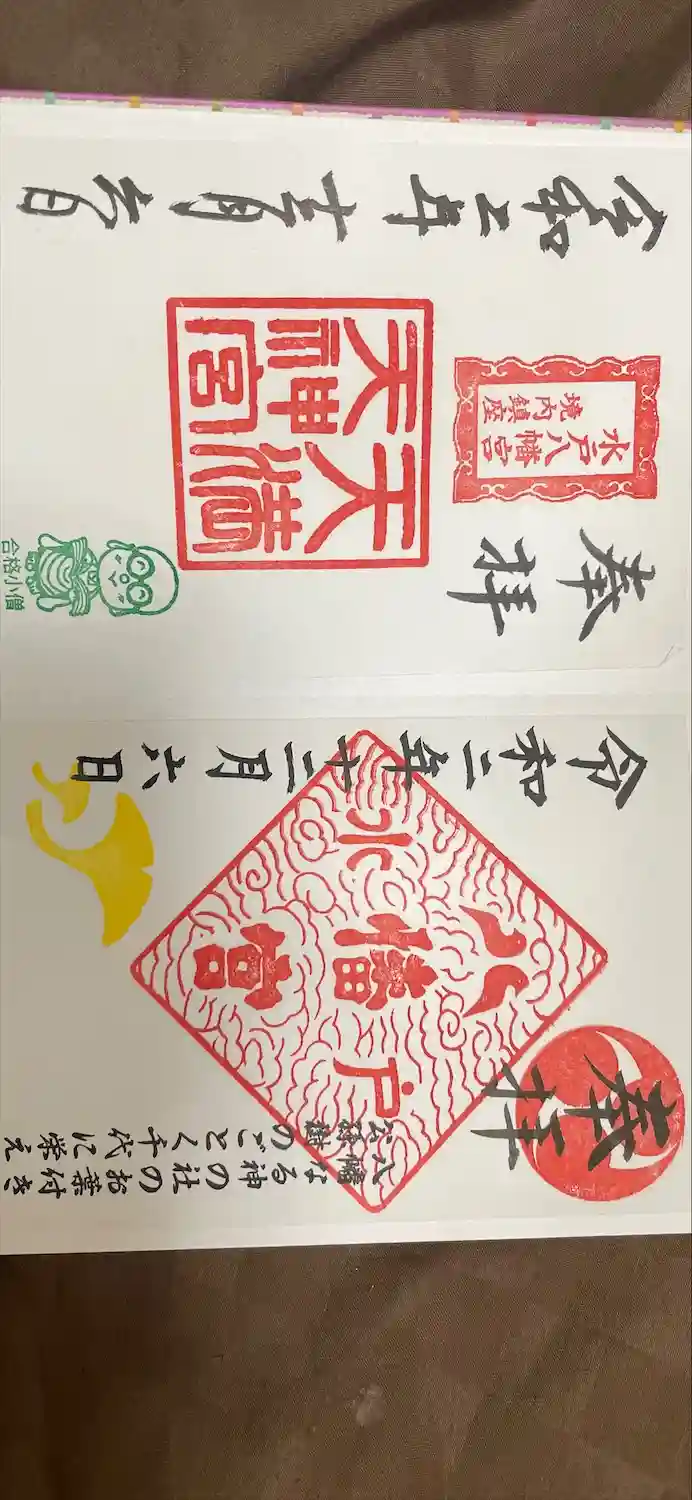 奉拝
八幡なる神の社のお葉付き
公孫樹のごとく千代に栄え
水戸八幡宮
令和二年十二月六日
奉拝
水戸八幡宮
境内鎮座
天満
天神宮
合格小僧
令和二年十二月六日